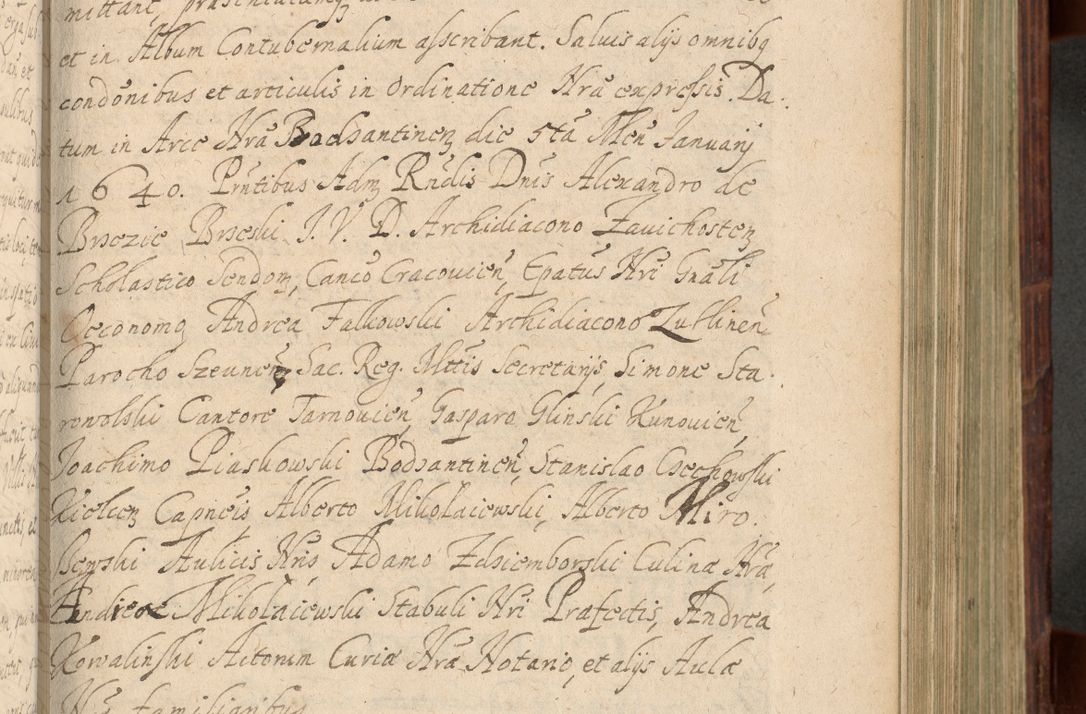 et in Album Contubernalium asscribant. Saluis alijs omnibq
condõnibus et articulis in Ordinatione Nrã expressis. Da-
tum in Arce Nrã Bodzantineñ die 5tã Meñ Januarij
1640. Prñtibus Admz Rñdis Dñis Alexandro de
Brzezie Brzeski I. V. D. Archidiacono Zauichosteñ
Scholastico Sendomz, Canco Cracouieñ, Epatus Nri Gnãli
Oeconomq Andrea Falkowski Archidiacono Lublineñ
Parocho Szeuneñ, Sac. Reg. Mttis Secretarijs, Simone Sta-
rowolski Cantore Tarnouieñ, Gasparo Glinski Kunouieñ,
Joachimo Piaskowski Bodzantineñ, Stanislao Czechowski
Kielceñ Capneis Alberto Mikołaiewski, Alberto Miro-
szewski Aulicis Nris Adamo Zdziemborski Culinæ Nræ,
Andreæ Mikołaiewski Stabuli Nri Præfectis, Andrea
Kowalinski Actorum Curiæ Nræ Notario, et alijs Aulæ
familiaribus